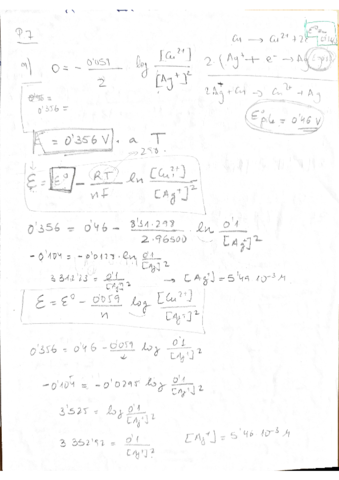 P7
a) 0 = - 0'059/2 log [Cu²⁺]/[Ag⁺]²
Cu → Cu²⁺ + 2e⁻
2 (Ag⁺ + e⁻ → Ag
2Ag⁺ + Cu → Cu²⁺ + Ag
E°pila = 0'46 V
0'356 =
E = 0'356 V . a T
→ 298
E = E° - RT/nF ln [Cu²⁺]/[Ag⁺]²
0'356 = 0'46 - 8'31·298/2·96500 . ln 0'1/[Ag⁺]²
-0'104 = -0'0128 · ln 0'1/[Ag⁺]²
= 0'1/[Ag⁺]² → [Ag⁺] = 5'49 10⁻³ M
E = E° - 0'059/n log [Cu²⁺]/[Ag⁺]²
0'356 = 0'46 - 0'059/2 log 0'1/[Ag⁺]²
-0'104 = -0'0295 log 0'1/[Ag⁺]²
3'525 = log 0'1/[Ag⁺]²
3352'92 = 0'1/[Ag⁺]² [Ag⁺] = 5'46 10⁻³ M